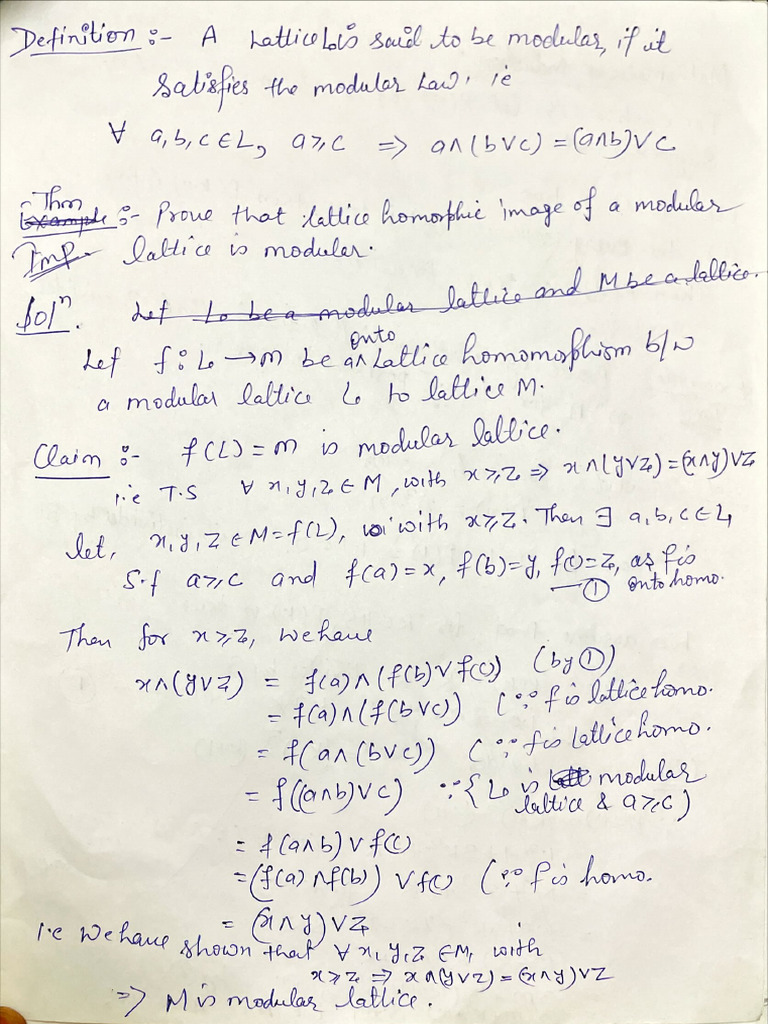 Definition :- A Lattice L is said to be modular, if it
satisfies the modular Law. ie
∀ a, b, c ∈ L, a ⩾ c ⇒ a∧(b∨c) = (a∧b)∨c
Thm
Example :- Prove that lattice homorphic image of a modular
Imp lattice is modular.
Solⁿ. Let L be a modular lattice and M be a lattice.
onto
Let f: L → M be an Lattice homomorphism b/w
a modular lattice L to lattice M.
Claim :- f(L) = M is modular lattice.
i.e T.S ∀ x, y, z ∈ M, with x ⩾ z ⇒ x∧(y∨z) = (x∧y)∨z
let, x, y, z ∈ M = f(L), with x ⩾ z. Then ∃ a, b, c ∈ L
S.t a ⩾ c and f(a) = x, f(b) = y, f(c) = z, as f is
— ① onto homo.
Then for x ⩾ z, we have
x∧(y∨z) = f(a)∧(f(b)∨f(c)) (by ①)
= f(a)∧(f(b∨c)) (∵ f is lattice homo.
= f(a∧(b∨c)) (∵ f is Lattice homo.
= f((a∧b)∨c) ∵ { L is modular
lattice & a ⩾ c )
= f(a∧b)∨f(c)
= (f(a)∧f(b))∨f(c) (∵ f is homo.
= (x∧y)∨z
i.e We have shown that ∀ x, y, z ∈ M, with
x ⩾ z ⇒ x∧(y∨z) = (x∧y)∨z
⇒ M is modular lattice.